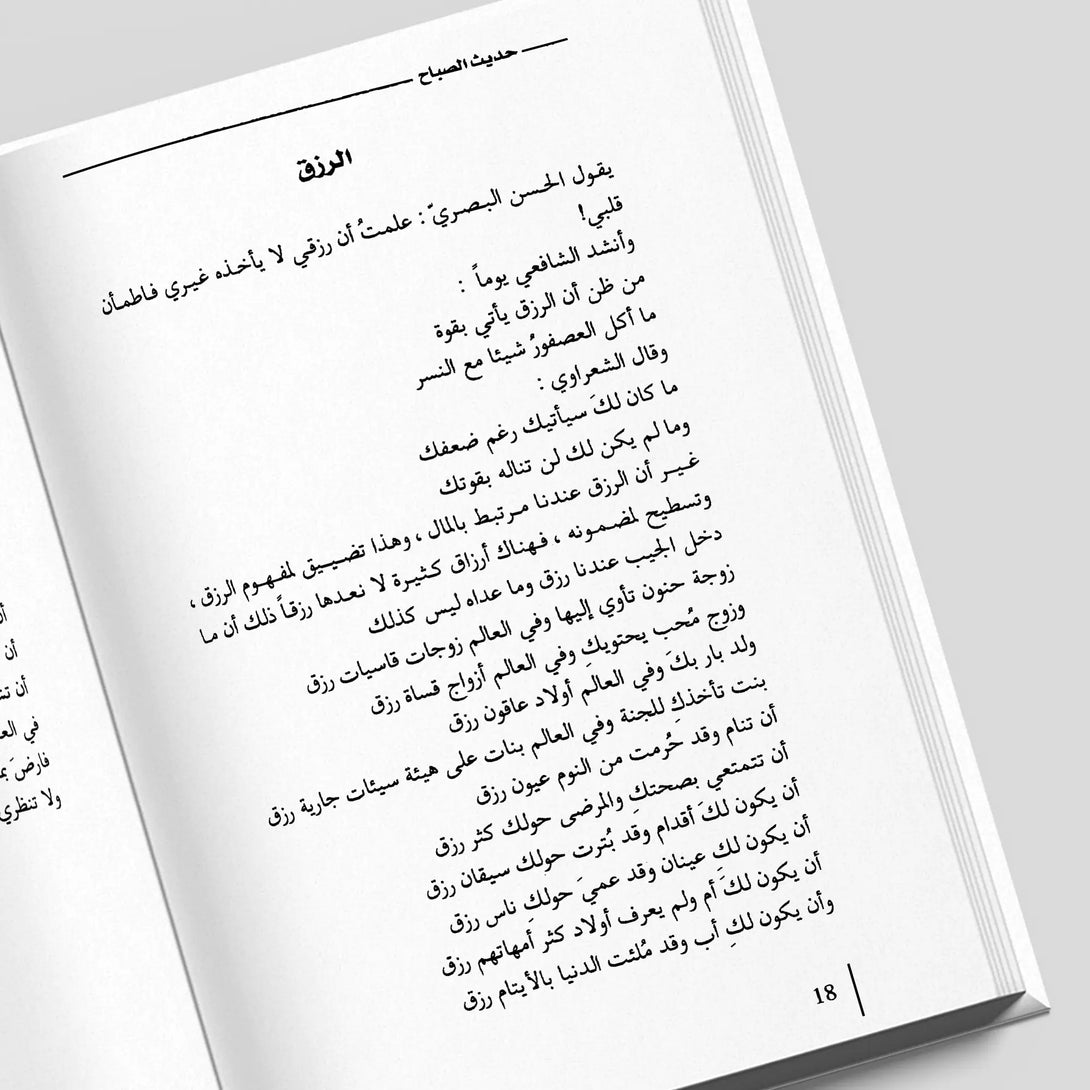 حديث الصباح
الرزق
يقول الحسن البصريّ : علمتُ أن رزقي لا يأخذه غيري فاطمأن
قلبي!
وأنشد الشافعي يوماً :
من ظن أن الرزق يأتي بقوة
ما أكل العصفورُ شيئا مع النسر
وقال الشعراوي :
ما كان لكَ سيأتيك رغم ضعفك
وما لم يكن لك لن تناله بقوتك
غير أن الرزق عندنا مرتبط بالمال ، وهذا تضييق لمفهوم الرزق ،
وتسطيح لمضمونه ، فهناك أرزاق كثيرة لا نعدها رزقاً ذلك أن ما
دخل الجيب عندنا رزق وما عداه ليس كذلك
زوجة حنون تأوي إليها وفي العالم زوجات قاسيات رزق
وزوج مُحب يحتويكِ وفي العالم أزواج قساة رزق
ولد بار بكَ وفي العالم أولاد عاقون رزق
بنت تأخذكِ للجنة وفي العالم بنات على هيئة سيئات جارية رزق
أن تنام وقد حُرمت من النوم عيون رزق
أن تتمتعي بصحتكِ والمرضى حولك كثر رزق
أن يكون لكَ أقدام وقد بُترت حولك سيقان رزق
أن يكون لكِ عينان وقد عميَ حولكِ ناس رزق
أن يكون لكَ أم ولم يعرف أولاد كثر أمهاتهم رزق
وأن يكون لكِ أب وقد مُلئت الدنيا بالأيتام رزق
18
أن
في
ولا تنظري